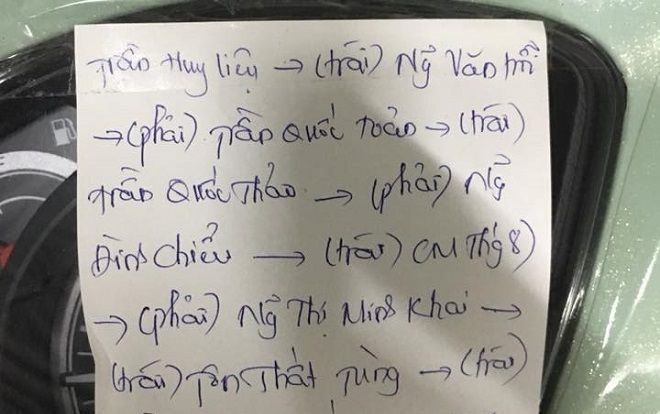 Trần Huy Liệu → (trái) Ng̃ Văn Trỗi
→ (phải) Trần Quốc Toản → (trái)
Trần Quốc Thảo → (phải) Ng̃
Đình Chiểu → (trái) CM Thg 8)
→ (phải) Ng̃ Thị Minh Khai →
(trái) Tôn Thất Tùng → (trái)